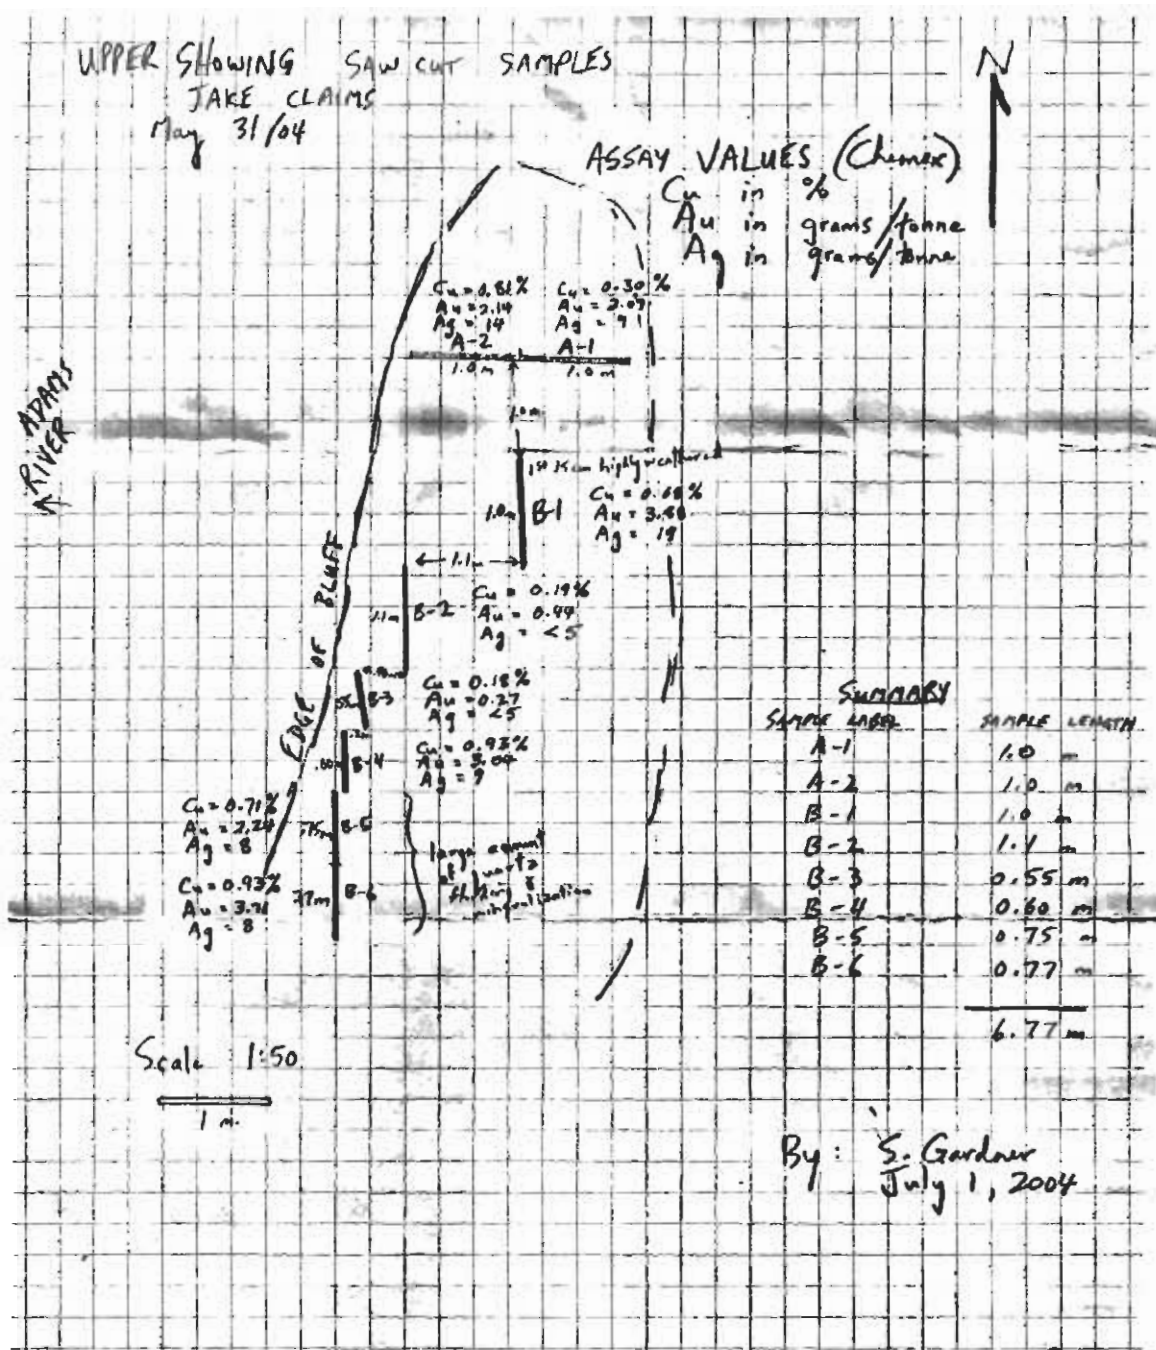 UPPER SHOWING SAW CUT SAMPLES
JAKE CLAIMS
May 31/04
N
ASSAY VALUES (Chemex)
Cu in %
Au in grams/tonne
Ag in grams/tonne
Cu = 0.81%
Au = 2.14
Ag = 14
A-2
1.0 m
Cu = 0.30%
Au = 2.07
Ag = 91
A-1
1.0 m
ADAMS
RIVER
1.0m
1st 15cm highly weathered
1.0m B-1
Cu = 0.68%
Au = 3.88
Ag = 19
1.1m
EDGE OF BLUFF
1.1m B-2
Cu = 0.19%
Au = 0.44
Ag = <5
.55m B-3
Cu = 0.18%
Au = 0.27
Ag = <5
.2m
.60m B-4
Cu = 0.93%
Au = 3.04
Ag = 9
Cu = 0.71%
Au = 2.24
Ag = 8
.75m B-5
Cu = 0.93%
Au = 3.71
Ag = 8
.77m B-6
large amount
of quartz
&
mineralization
SUMMARY
SAMPLE LABEL SAMPLE LENGTH
A-1 1.0 m
A-2 1.0 m
B-1 1.0 m
B-2 1.1 m
B-3 0.55 m
B-4 0.60 m
B-5 0.75 m
B-6 0.77 m
6.77 m
Scale 1:50
1 m.
By: S. Gardner
July 1, 2004